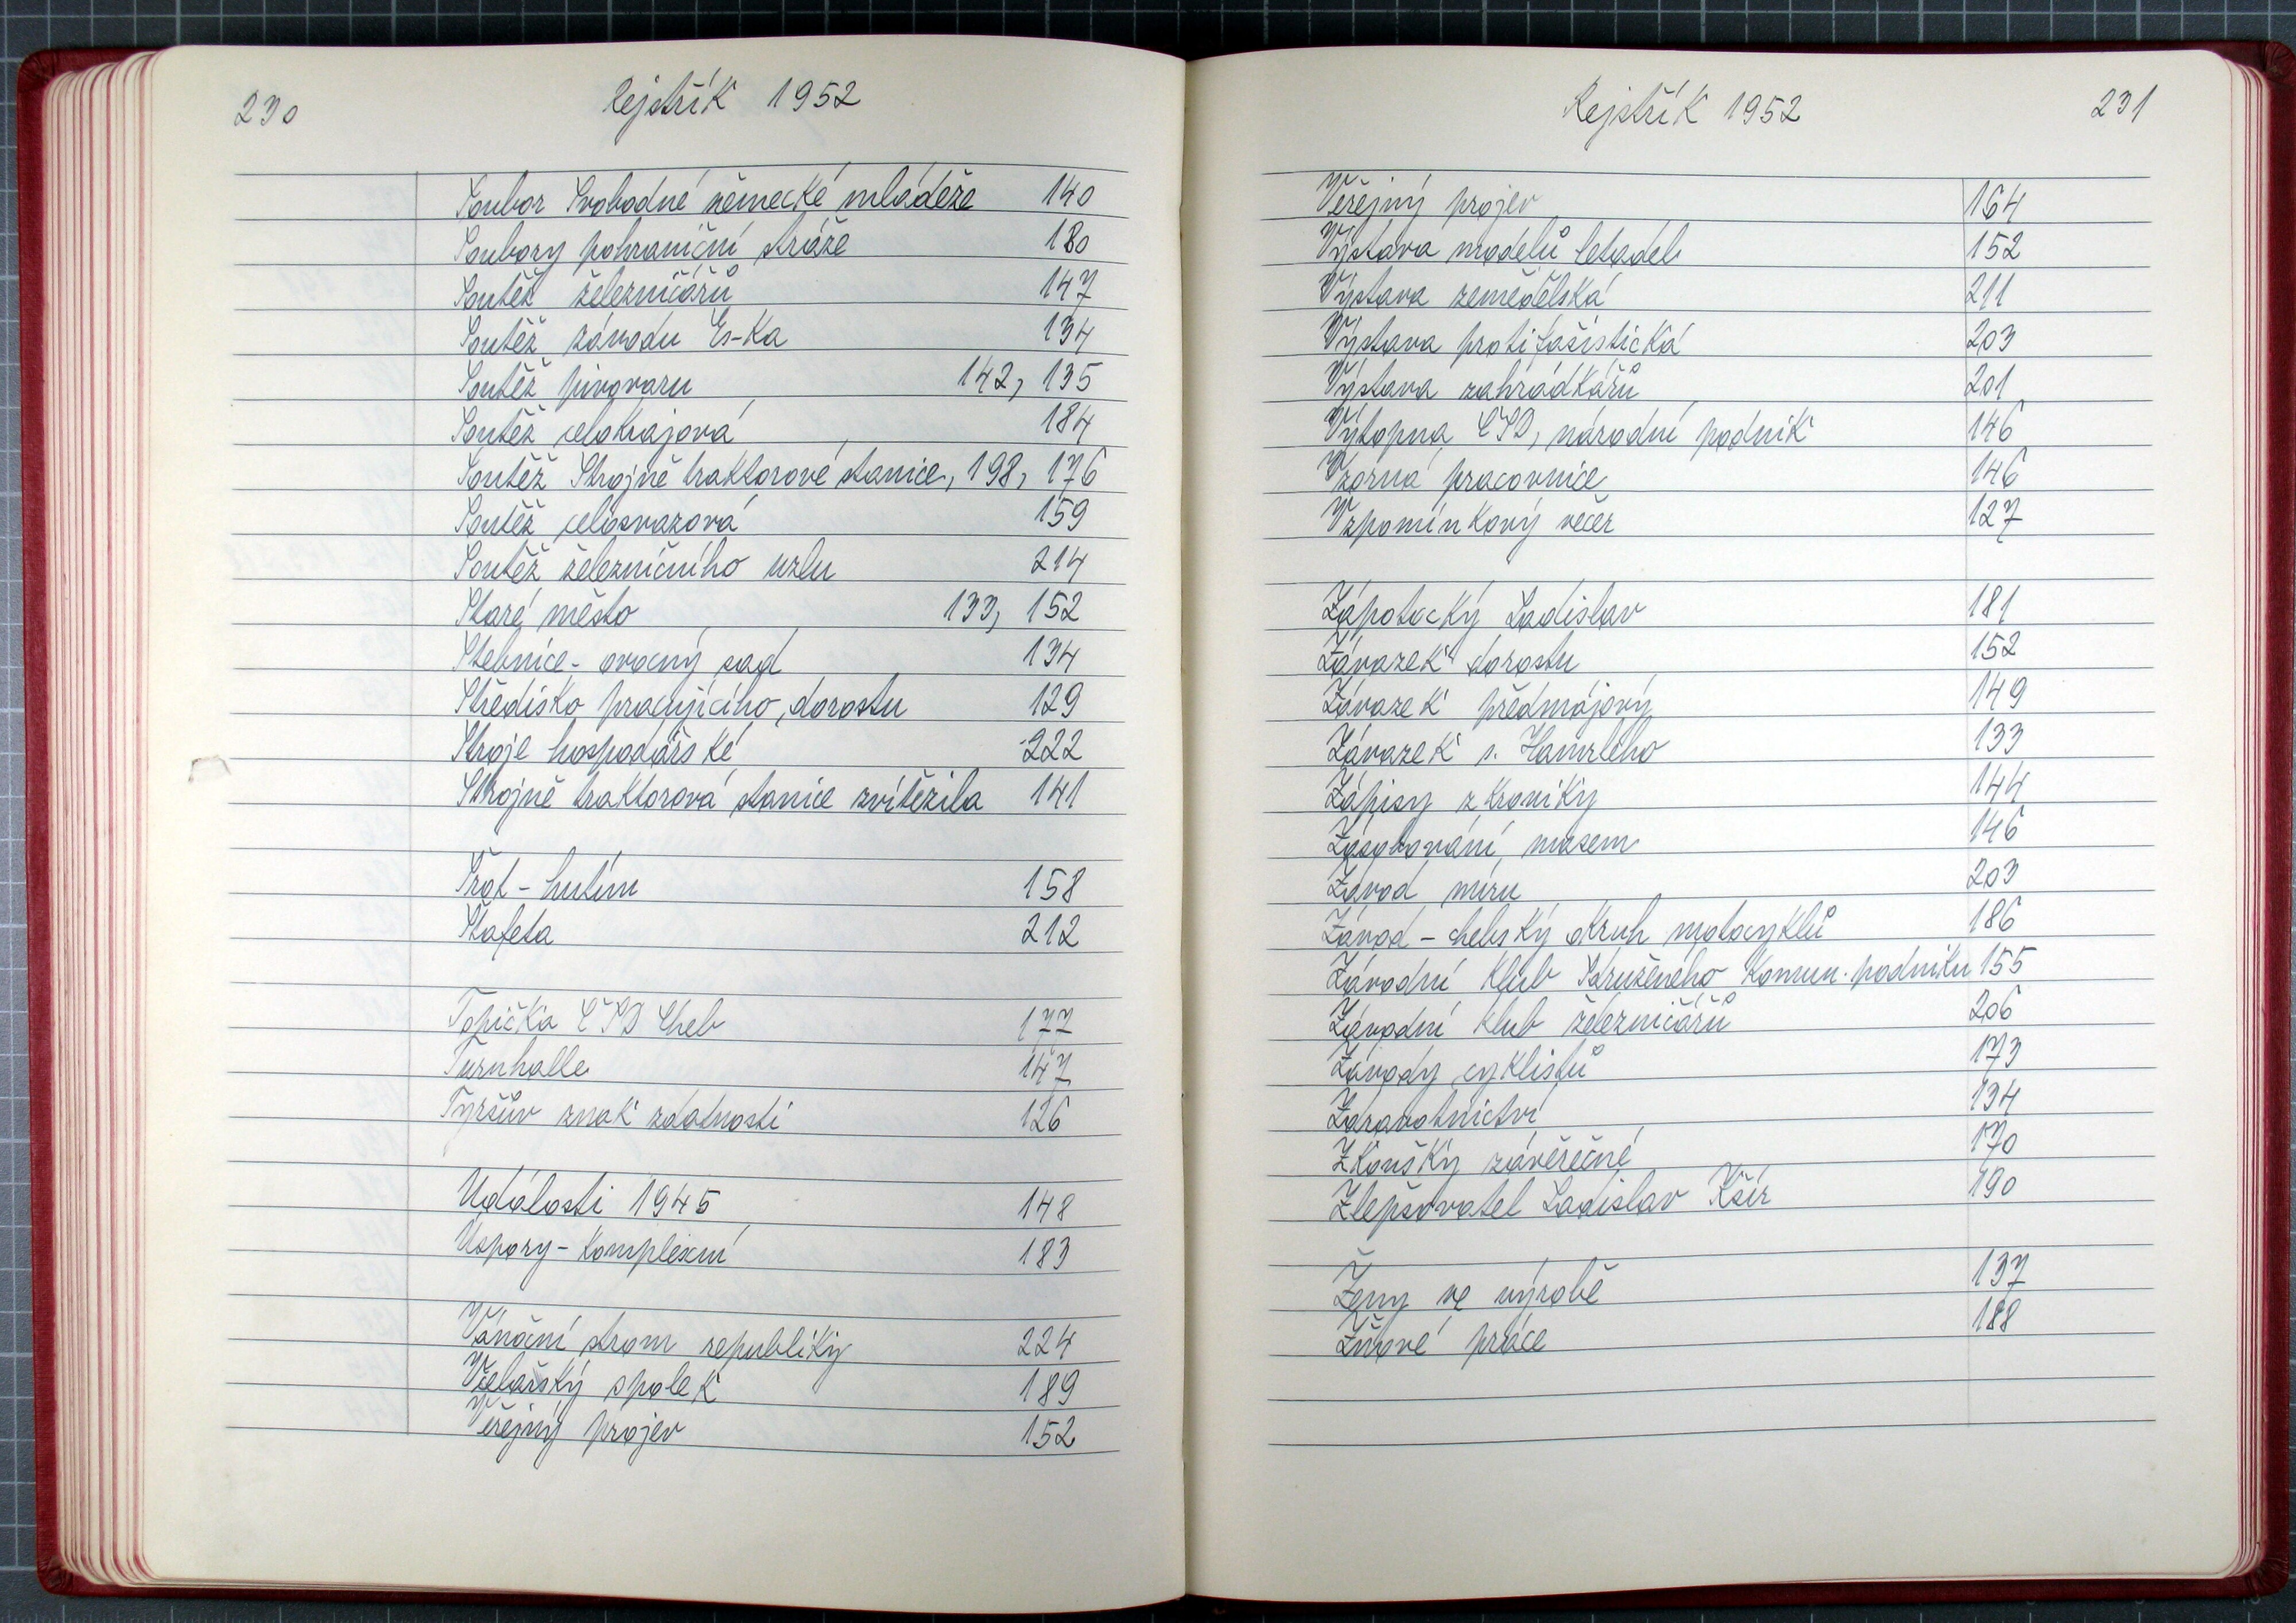 230
Rejstřík 1952
Soubor Svobodné německé mládeže 140
Soubory pohraniční stráže 180
Soutěž železničářů 147
Soutěž závodu Es-Ka 134
Soutěž pivovaru 142, 135
Soutěž celokrajová 184
Soutěž Strojně traktorové stanice, 198, 176
Soutěž celosvazová 159
Soutěž železničního uzlu 214
Staré město 133, 152
Stebnice - ovocný sad 134
Středisko pracujícího dorostu 129
Stroje hospodářské 222
Strojně traktorová stanice zvítězila 141
Šrot - hutím 158
Štafeta 212
Topička ČSD Cheb 177
Turnhalle 147
Tyršův znak zdatnosti 126
Události 1945 148
Úspory - komplexní 183
Vánoční strom republiky 224
Včelařský spolek 189
Veřejný projev 152
Rejstřík 1952
231
Veřejný projev 164
Výstava modelů letadel 152
Výstava zemědělská 211
Výstava protifašistická 203
Výstava zahrádkářů 201
Výtopna ČSD, národní podnik 146
Vzorná pracovnice 146
Vzpomínkový večer 127
Zápotocký Ladislav 181
Závazek dorostu 152
Závazek předmájový 149
Závazek s. Hamrleho 133
Zápisy z kroniky 144
Zásobování masem 146
Závod míru 203
Závod - chebský okruh motocyklů 186
Závodní klub Sdruženého komun. podniku 155
Závodní klub železničářů 206
Závody cyklistů 173
Zdravotnictví 134
Zkoušky závěrečné 170
Zlepšovatel Ladislav Kšír 190
Ženy ve výrobě 137
Žňové práce 188